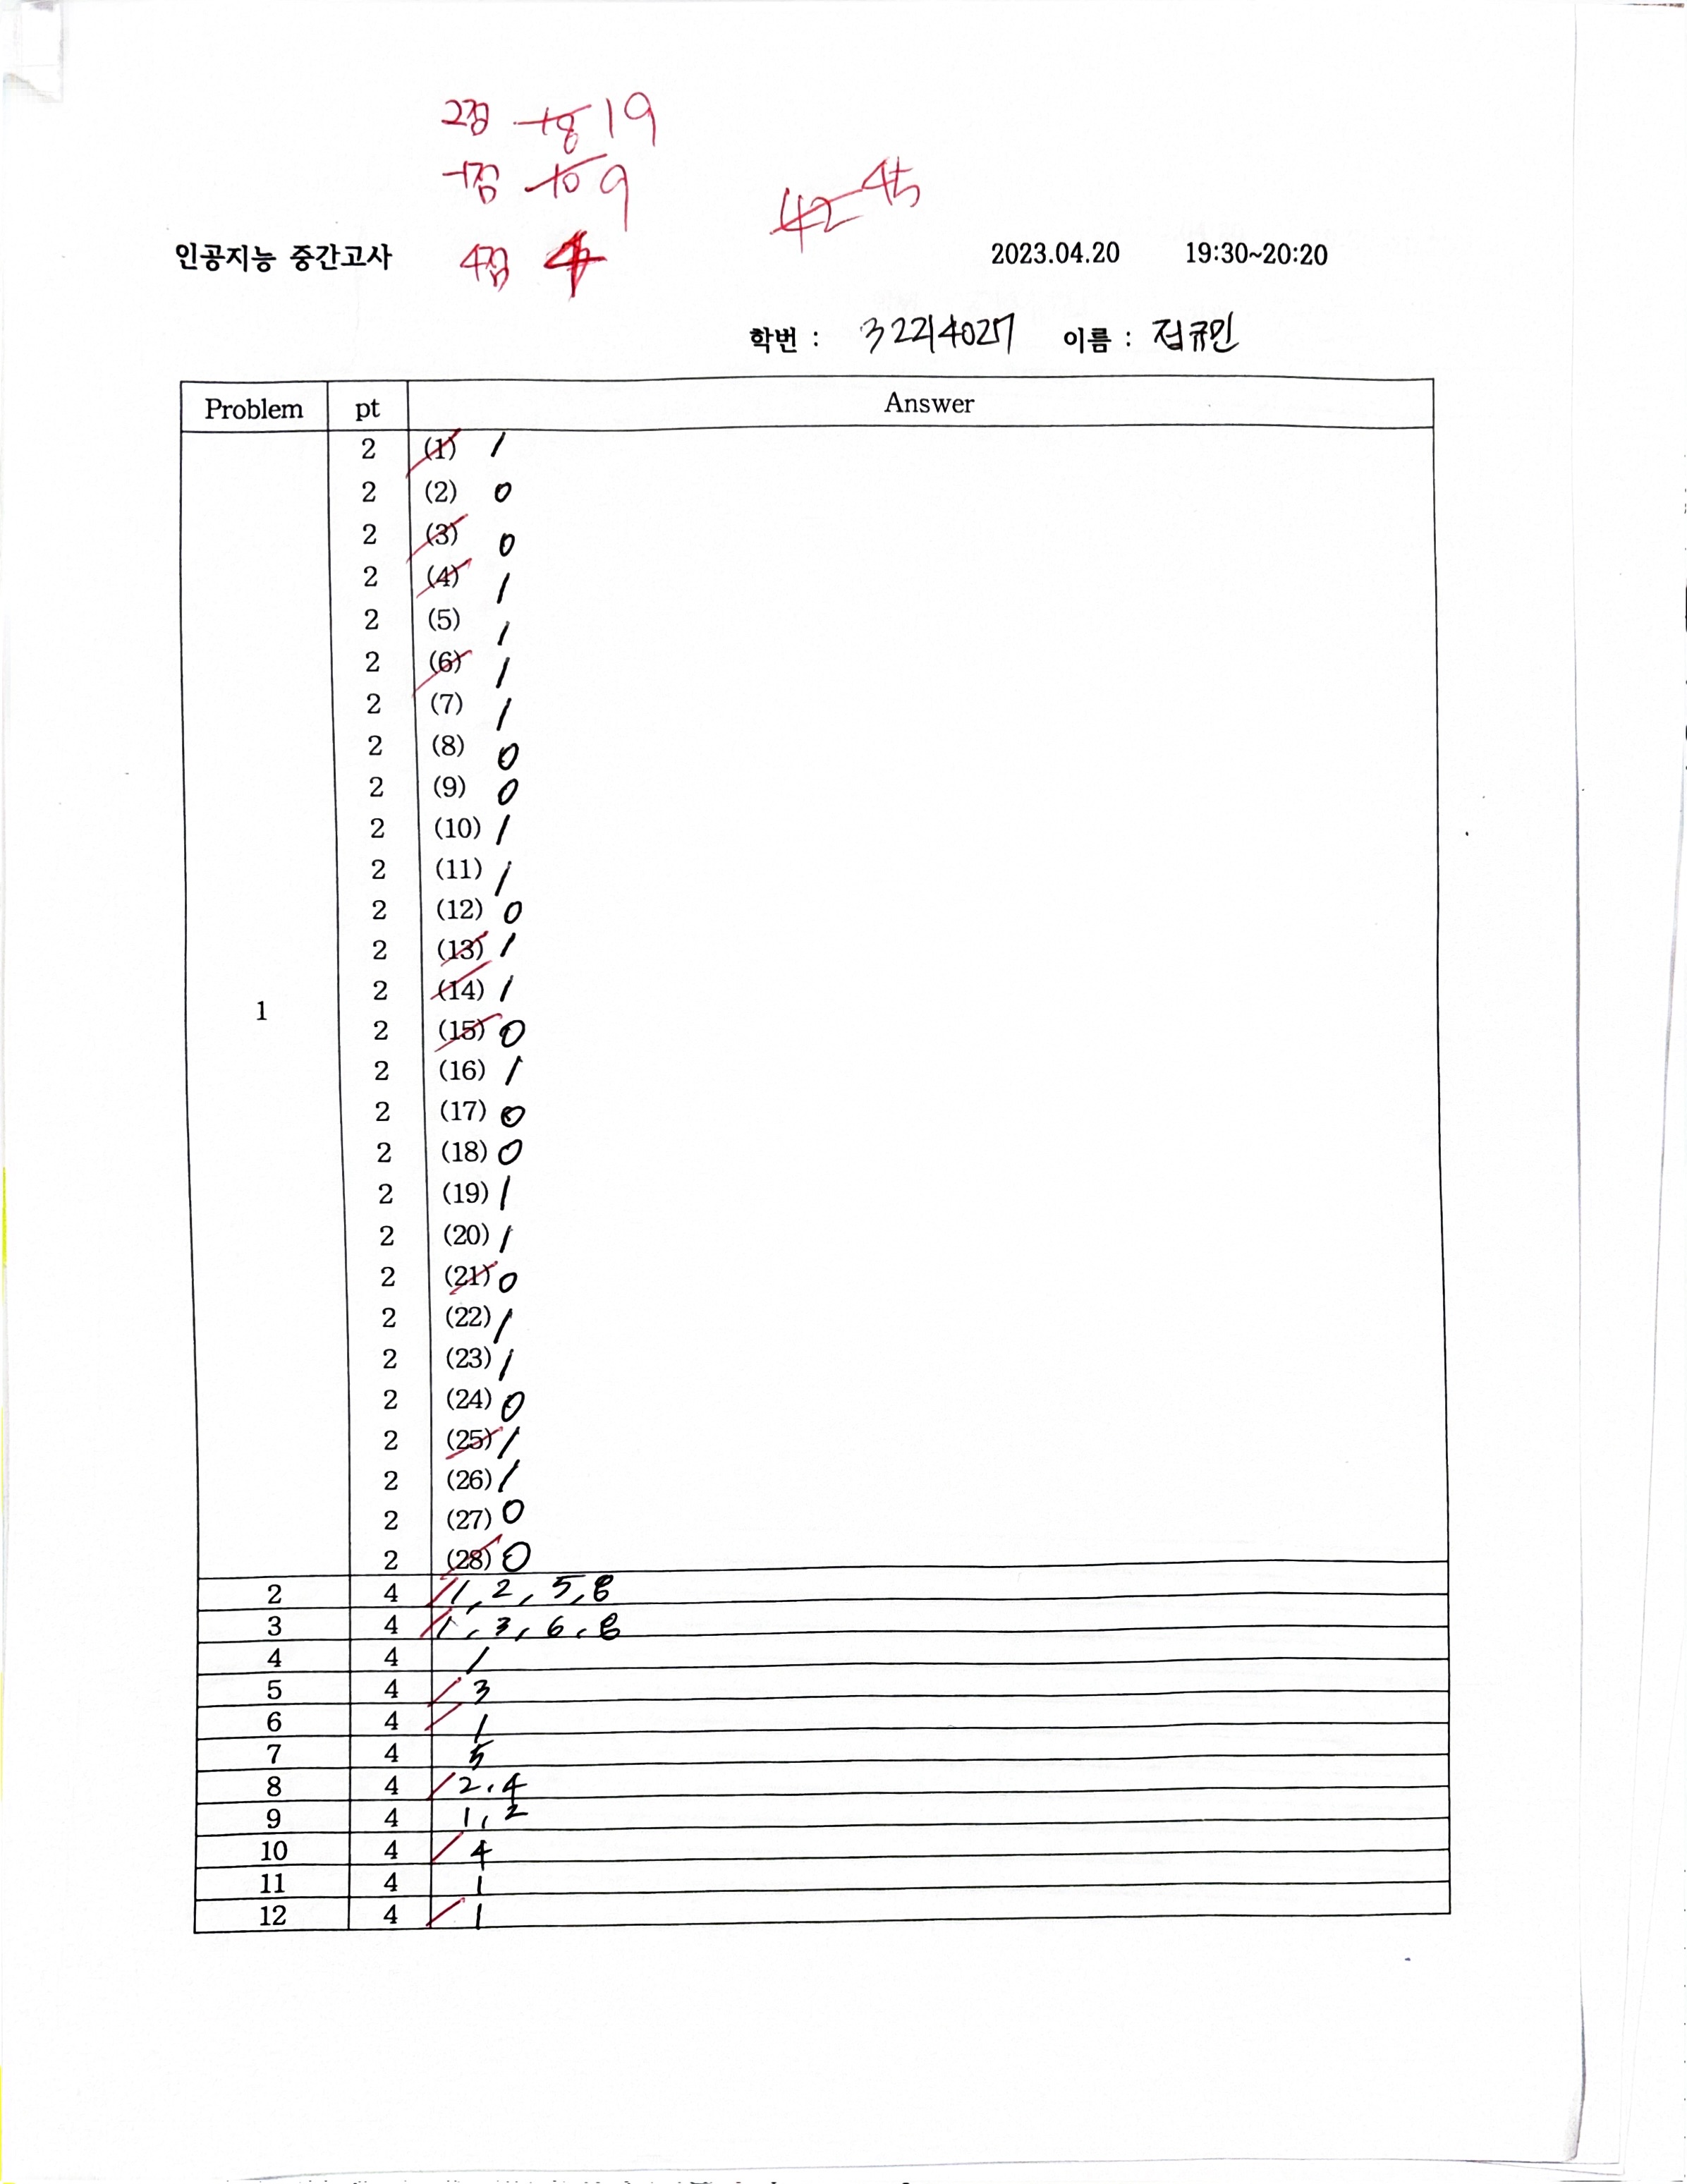 2점 18 19
-1점 10 9
42 45
인공지능 중간고사 4점 4 2023.04.20 19:30~20:20
학번 : 32214027 이름 : 정규민
Problem pt Answer
1
2 (1) 1
2 (2) 0
2 (3) 0
2 (4) 1
2 (5) 1
2 (6) 1
2 (7) 1
2 (8) 0
2 (9) 0
2 (10) 1
2 (11) 1
2 (12) 0
2 (13) 1
2 (14) 1
2 (15) 0
2 (16) 1
2 (17) 0
2 (18) 0
2 (19) 1
2 (20) 1
2 (21) 0
2 (22) 1
2 (23) 1
2 (24) 0
2 (25) 1
2 (26) 1
2 (27) 0
2 (28) 0
2 4 1, 2, 5, 8
3 4 1, 3, 6, 8
4 4 1
5 4 3
6 4 1
7 4 5
8 4 2, 4
9 4 1, 2
10 4 4
11 4 1
12 4 1